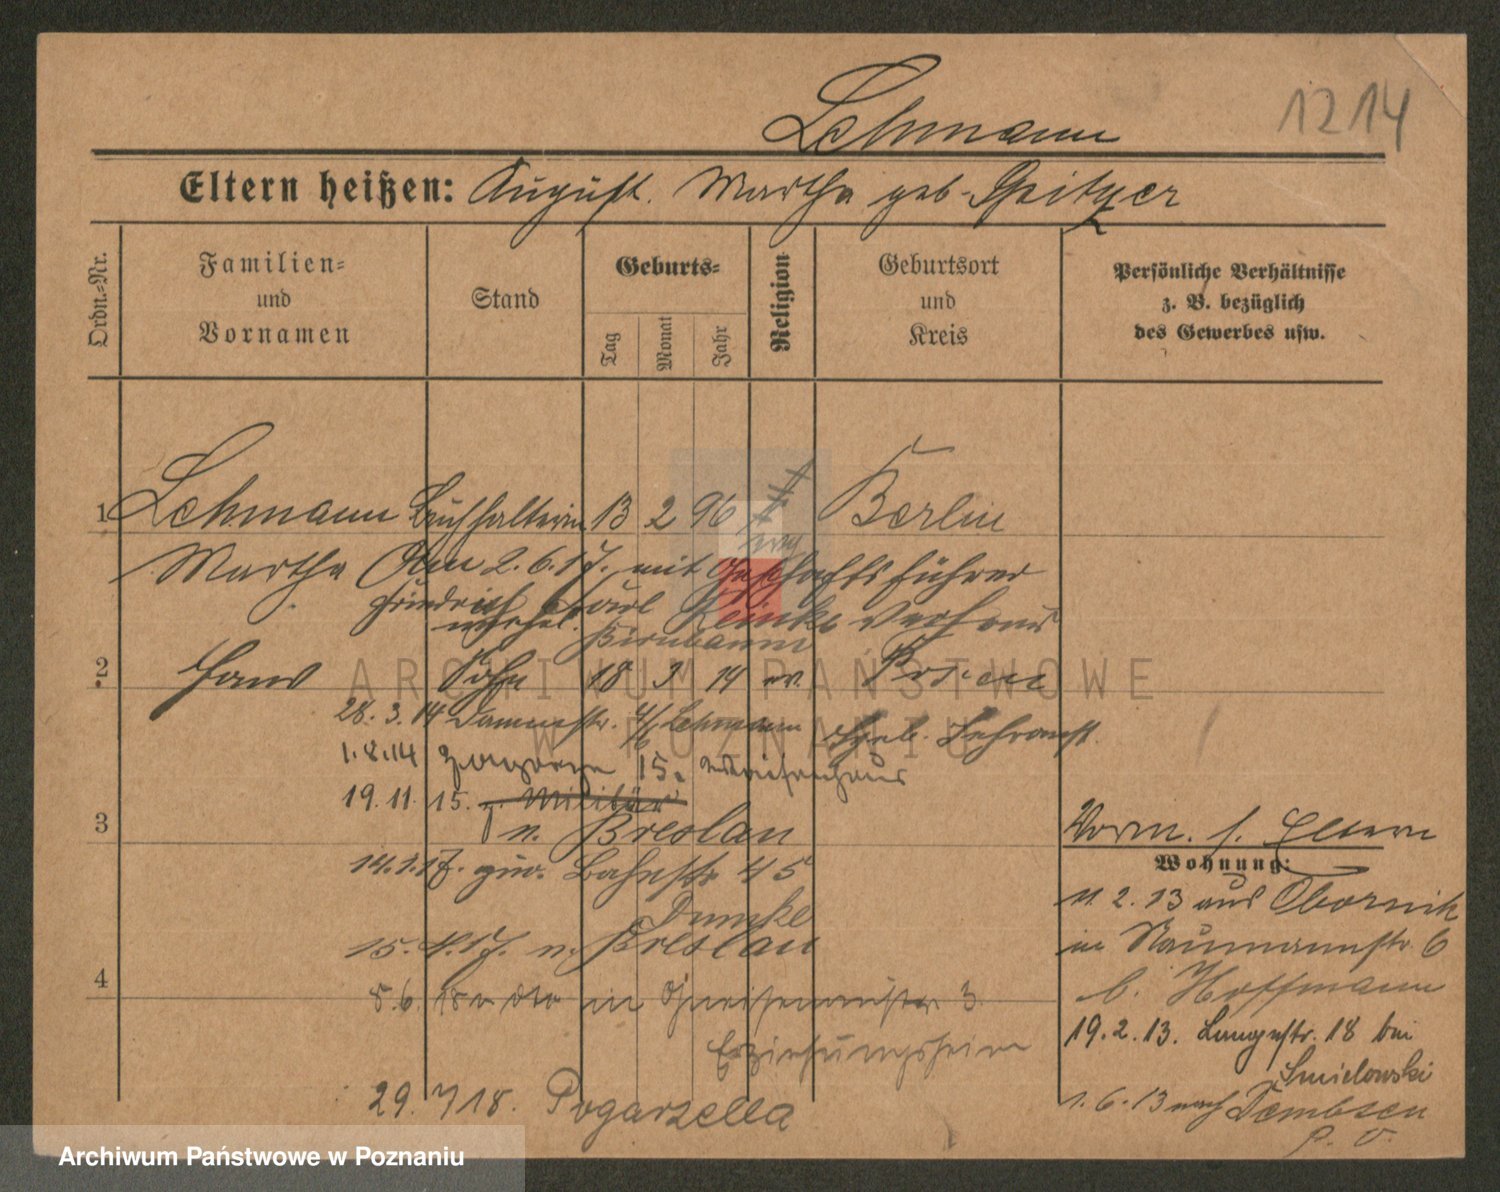 Lehmann
1214
Eltern heißen: August. Martha geb. Speitzer
Ordn.=Nr.
Familien=
und
Vornamen
Stand
Geburts=
Tag
Monat
Jahr
Religion
Geburtsort
und
Kreis
Persönliche Verhältnisse
z. B. bezüglich
des Gewerbes usw.
1 Lehmann Buchhalterin 13 2 96 Berlin
Martha Am 2.6.17. mit Geschäftsführer
Friedrich Karl Reinke verh.
Birnbaum
2 Hans Sohn 18 3 14 ev. Posen
28. 3. 14 Dammstr. Lehmann
1.8.14 15.
19. 11. 15. z. Militär
3 n. Breslau
14.1.17. zur. Bahnstr 45
Dumke
15. 4. 17. n. Breslau
4
8. 6. 18 v. dto in 3.
Erziehungsheim
29. 7 18. Pogarzella
Vorm. s. Eltern
Wohnung:
11. 2. 13 aus Obornik
in Naumannstr. 6
b. Hoffmann
19. 2. 13. Langestr. 18 bei
Smielowski
1. 6. 13 nach Dembsen
P. O.
ARCHIWUM PAŃSTWOWE
W POZNANIU
Archiwum Państwowe w Poznaniu